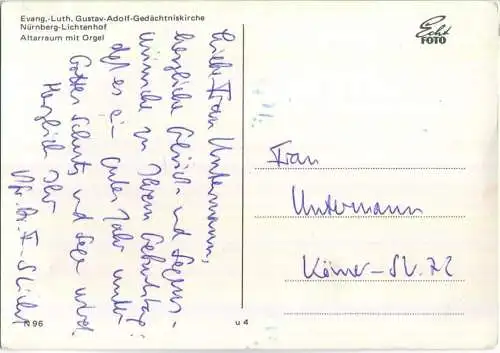 Evang.-Luth. Gustav-Adolf-Gedächtniskirche
Nürnberg-Lichtenhof
Altarraum mit Orgel
Echt
FOTO
Liebe Frau Untermann,
herzliche Glück- und Segens-
wünsche zu Ihrem Geburtstag:
daß es ein gutes Jahr unter
Gottes Schutz und Segen wird!
Herzlich Ihr
Frau
Untermann
Körner-Str. 72
N 96
u 4